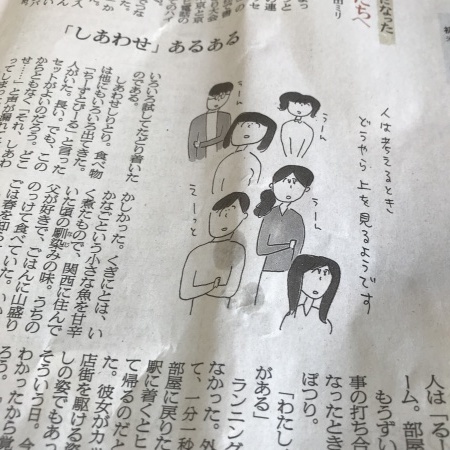 になった
たちへ
「しあわせ」あるある
人は考えるとき
どうやら上を見るようです
うーん
うーん
うーん
うーん
えーっと
いろいろ試してたどり着いた
のである。
しあわせしりとり。食べ物
は他にもいろいろ出てきた。
「ちーずとびーる」と言った
人がいた。長い。でも、この
セットがよいのだろう。どこ
からともなく「それ、しあわ
せ……」と声が漏れ
かしかった。くぎにとは、い
かなごという小さな魚を甘辛
く煮たもので、関西に住んで
いた頃の馴染みの味。うちの
父が好きで、ごはんに山盛り
のっけて食べていた。
ごは春を知ら
人は「るー
ーム。部屋
もうずい
事の打ち合
なったとき
ぽつり。
「わたし
がある」
ランニング
なかった。外
て、一分一秒
部屋に戻りた
駅に着くとヒ
て帰るのだと
た。彼女がカッ
店街を駆ける姿
しの姿でもあっ
そういう日。今
わかったから覚
ろう。